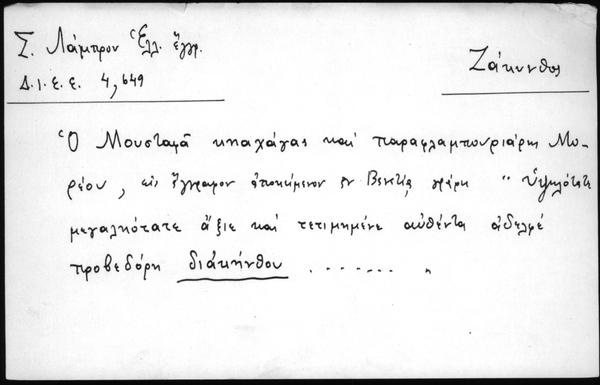 Σ. Λάμπρου Ἑλλ. ἔγγρ.
Δ.Ι.Ε.Ε. 4, 649
Ζάκυνθος
Ὁ Μουσταφᾶ κιαχάγιας καὶ παραφλαμπουριάρης Μο-
ρέου, εἰς ἔγγραφον ἀποκείμενον ἐν Βενετίᾳ, γράφει " Ὑψηλότατε
μεγαλιότατε ἄξιε καὶ τετιμημένε αὐθέντα ἀδελφέ
προβεδόρη διάκήνθου ........ "